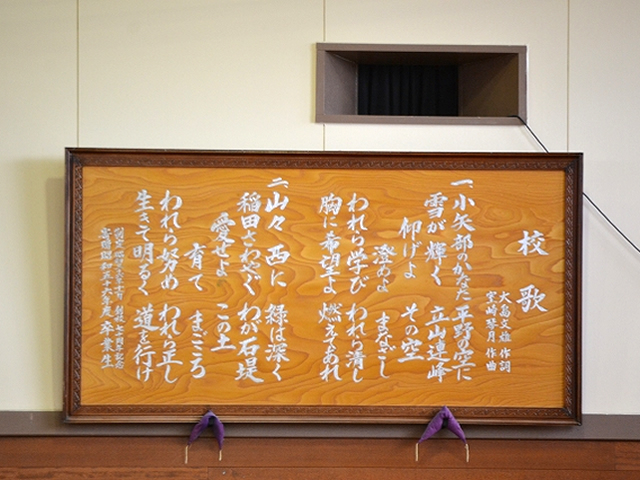 校歌
大島文雄 作詞
室崎琴月 作曲
一、小矢部のかなた 平野の空に
雪が輝く 立山連峰
仰げよ その空
澄めよ まなざし
われら学び われら清し
胸に希望よ 燃えてあれ
二、山々 西に 緑は深く
稲田さわやぐ わが石堤
愛せよ この土
育て まごころ
われら努め われら正し
生きて明るく 道を行け
寄贈 昭和五十五年度 卒業生